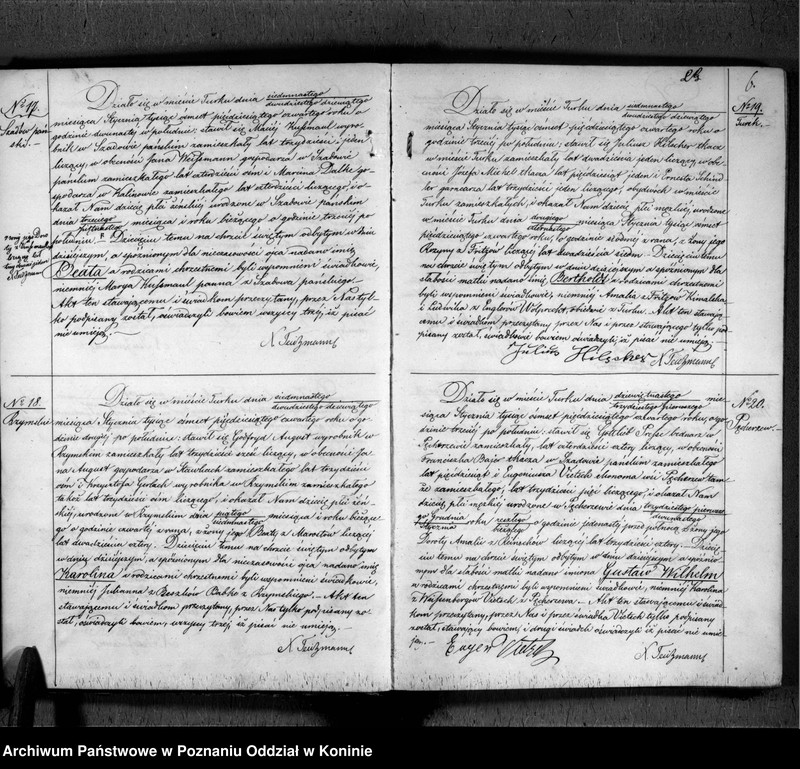 No 17.
Szadów pań
ski. –
Działo się w mieście Turku dnia siedmnastego
dwudziestego dziewiątego
miesiąca Stycznia tysiąc ośmset pięćdziesiątego czwartego roku o
godzinie dwunastej w południe; stawił się Maciej Kussmaul wyro-
bnik w Szadowie pańskim zamieszkały lat trzydzieści jeden
liczący, w obecności Jana Weissmann gospodarza w Szadowie
pańskim zamieszkałego lat czterdzieści ośm i Marcina Dalke go-
spodarza w Kalinowie zamieszkałego lat czterdzieści liczącego, i o-
kazał Nam dziecię płci żeńskiej urodzone w Szadowie pańskim
dnia trzeciego
piętnastego miesiąca i roku bieżącego o godzinie trzeciej po
południu. Dziecięciu temu na chrzcie świętym odbytym w dniu
dzisiejszym, a spóźnionym dla niezasowości ojca nadano imię
Beata a rodzicami chrzestnemi byli wspomnieni świadkowie,
niemniej Marya Kussmaul panna z Szadowa pańskiego. –
Akt ten stawającemu i świadkom przeczytany, przez Nas tyl-
ko podpisany został, oświadczyli bowiem wszyscy trzej, iż pisać
nie umieją. –
N. Teitzmann
No 18.
Brzymślin
Działo się w mieście Turku dnia siedmnastego
dwudziestego dziewiątego
miesiąca Stycznia tysiąc ośmset pięćdziesiątego czwartego roku o go-
dzinie drugiej po południu; stawił się Godfryd August wyrobnik w
zamieszkały lat trzydzieści sześć liczący, w obecności Ja-
na August gospodarza w zamieszkałego lat trzydzieści
ośm i Krzysztofa Gerlach wyrobnika w zamieszkałego
także lat trzydzieści ośm liczącego, i okazał Nam dziecię płci żeń-
skiej, urodzone w dnia piątego
siedmnastego miesiąca i roku bieżące-
go o godzinie czwartej z rana, z żony jego Beaty z liczącej
lat dwadzieścia cztery. Dziecięciu temu na chrzcie świętym odbytym
w dniu dzisiejszym, a spóźnionym dla niezasowości ojca nadano imię
Karolina a rodzicami chrzestnemi byli wspomnieni świadkowie,
niemniej Julianna z Babke z – Akt ten
stawającemu i świadkom przeczytany, przez Nas tylko podpisany zo-
stał, oświadczyli bowiem, wszyscy trzej iż pisać nie umieją. –
N. Teitzmann
23
6.
No 19.
Turek. –
Działo się w mieście Turku dnia siedmnastego
dwudziestego dziewiątego
miesiąca Stycznia tysiąc ośmset pięćdziesiątego czwartego roku o
godzinie trzeciej po południu; stawił się Juliusz Hilscher tkacz
w mieście Turku zamieszkały lat dwadzieścia jeden liczący, w obe-
cności Józefa Michel tkacza lat pięćdziesiąt jeden i Ernesta Schind-
ler garncarza lat trzydzieści jeden liczącego, obydwóch w mieście
Turku zamieszkałych, i okazał Nam dziecię płci męzkiej urodzone
w mieście Turku dnia drugiego
czternastego miesiąca Stycznia tysiąc ośmset
pięćdziesiątego czwartego roku, o godzinie siódmej z rana, z żony jego
Rozyny z liczącej lat dwadzieścia siedm. – Dziecięciu temu
na chrzcie świętym odbytym w dniu dzisiejszym a spóźnionym dla
słabości matki nadano imię Berthold a rodzicami chrzestnemi
byli wspomnieni świadkowie, niemniej Amalia z
i Ludwika z obiedwie z Turku. Akt ten stawają-
cemu i świadkom przeczytany przez Nas i przez stawającego tylko pod-
pisany został, świadkowie bowiem oświadczyli, iż pisać nie umieją. –
Julius Hilscher N. Teitzmann
No 20.
Pęcherzew. –
Działo się w mieście Turku dnia dziewiętnastego
trzydziestego pierwszego mie-
siąca Stycznia tysiąc ośmset pięćdziesiątego czwartego roku, o go-
dzinie trzeciej po południu; stawił się Gottlieb bednarz w
Pęcherzewie zamieszkały, lat czterdzieści cztery liczący, w obecności
Franciszka Bajer tkacza w Szadowie pańskim zamieszkałego
lat pięćdziesiąt i Eugeniusza Vietsch ekonoma wsi Pęcherzew tam-
że zamieszkałego, lat trzydzieści pięć liczącego; i okazał Nam
dziecię płci męzkiej urodzone w Pęcherzewie dnia trzydziestego pierwsze-
go Grudnia
Stycznia roku zeszłego
bieżącego o godzinie jedenastej przed północą z żony jego
Doroty Amalii z lat trzydzieści cztery. – Dzieci-
ciu temu na chrzcie świętym odbytym w dniu dzisiejszym a spóźnio-
nym dla słabości matki nadano imiona Gustaw Wilhelm
a rodzicami chrzestnemi byli wspomnieni świadkowie, niemniej Karolina
z Vietsch z Pęcherzewa. – Akt ten stawającemu i świad-
kom przeczytany, przez Nas i przez świadka Vietsch tylko podpisany
został, stawający bowiem i drugi świadek oświadczyli iż pisać nie umie-
ją. –
Eugen Vietsch N. Teitzmann
Archiwum Państwowe w Poznaniu Oddział w Koninie